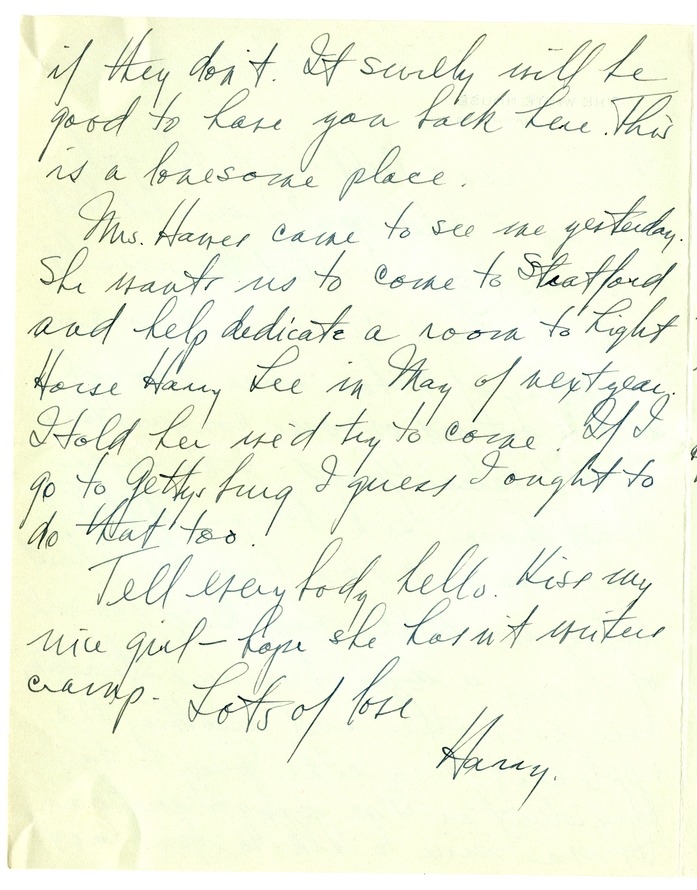 if they don't. It surely will be
good to have you back here. This
is a lonesome place.
Mrs. Hawes came to see me yesterday.
She wants us to come to Stratford
and help dedicate a room to Light
Horse Harry Lee in May of next year.
I told her we'd try to come. If I
go to Gettysburg I guess I ought to
do that too.
Tell everybody hello. Kiss my
nice girl – hope she hasn't writers
cramp. Lots of love
Harry.